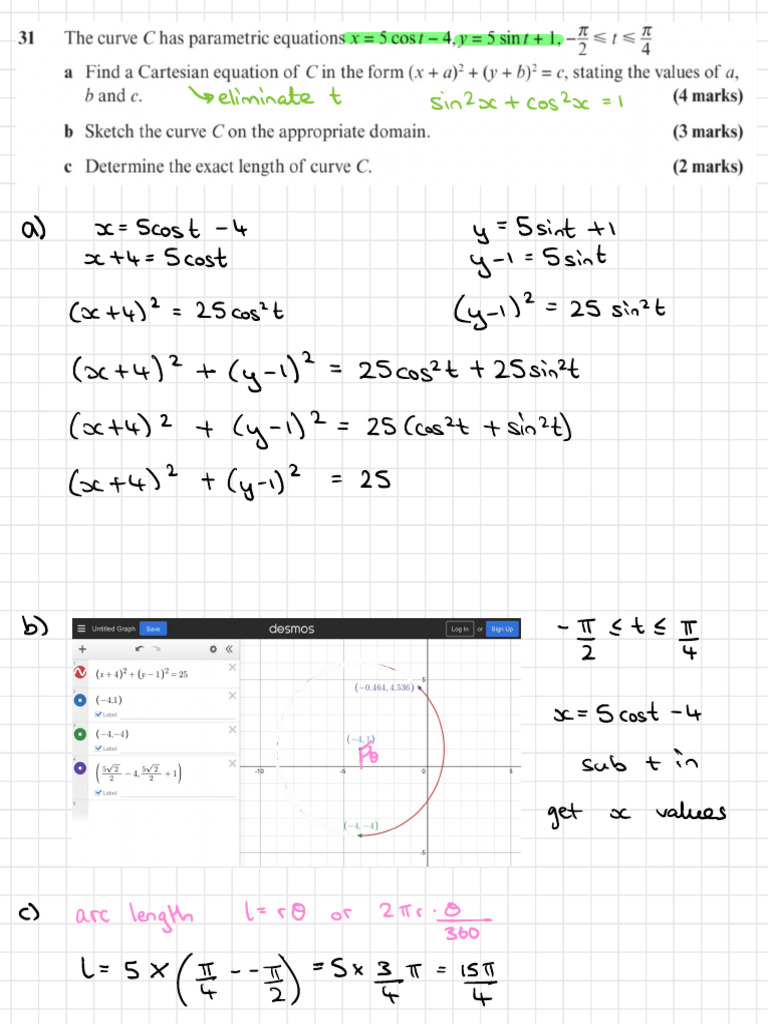 31 The curve C has parametric equations x = 5 cos t – 4, y = 5 sin t + 1, –π/2 ⩽ t ⩽ π/4
a Find a Cartesian equation of C in the form (x + a)² + (y + b)² = c, stating the values of a,
b and c. (4 marks)
↳eliminate t sin²x + cos²x = 1
b Sketch the curve C on the appropriate domain. (3 marks)
c Determine the exact length of curve C. (2 marks)
a) x = 5cost - 4 y = 5sint + 1
x+4 = 5cost y-1 = 5sint
(x+4)² = 25cos²t (y-1)² = 25 sin²t
(x+4)² + (y-1)² = 25cos²t + 25sin²t
(x+4)² + (y-1)² = 25(cos²t + sin²t)
(x+4)² + (y-1)² = 25
b)
Untitled Graph Save desmos Log In or Sign Up
(x + 4)² + (y – 1)² = 25
(–4,1)
Label
(–4,–4)
Label
(5√2/2 – 4, 5√2/2 + 1)
Label
(–0.464, 4.536)
5
(–4,1)
θ
-10 -5 0 5
(–4,–4)
-5
-π/2 ≤ t ≤ π/4
x = 5cost - 4
sub t in
get x values
c) arc length l = rθ or 2πr · θ/360
l = 5 × (π/4 - -π/2) = 5 × 3/4 π = 15π/4